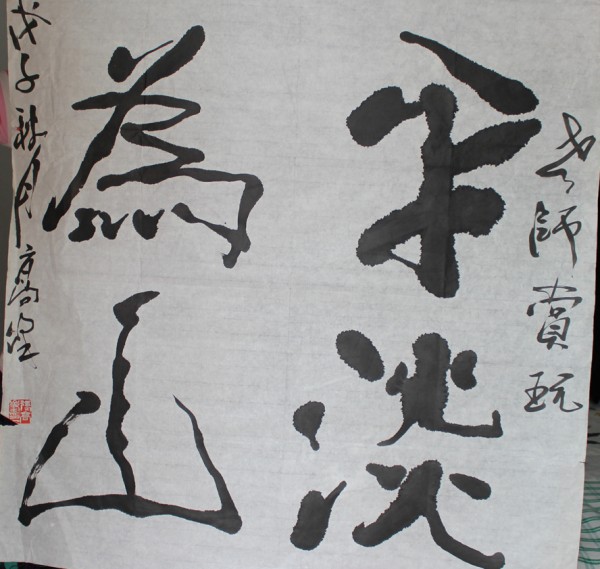 老師賞玩
平淡
為山
戊子秋月